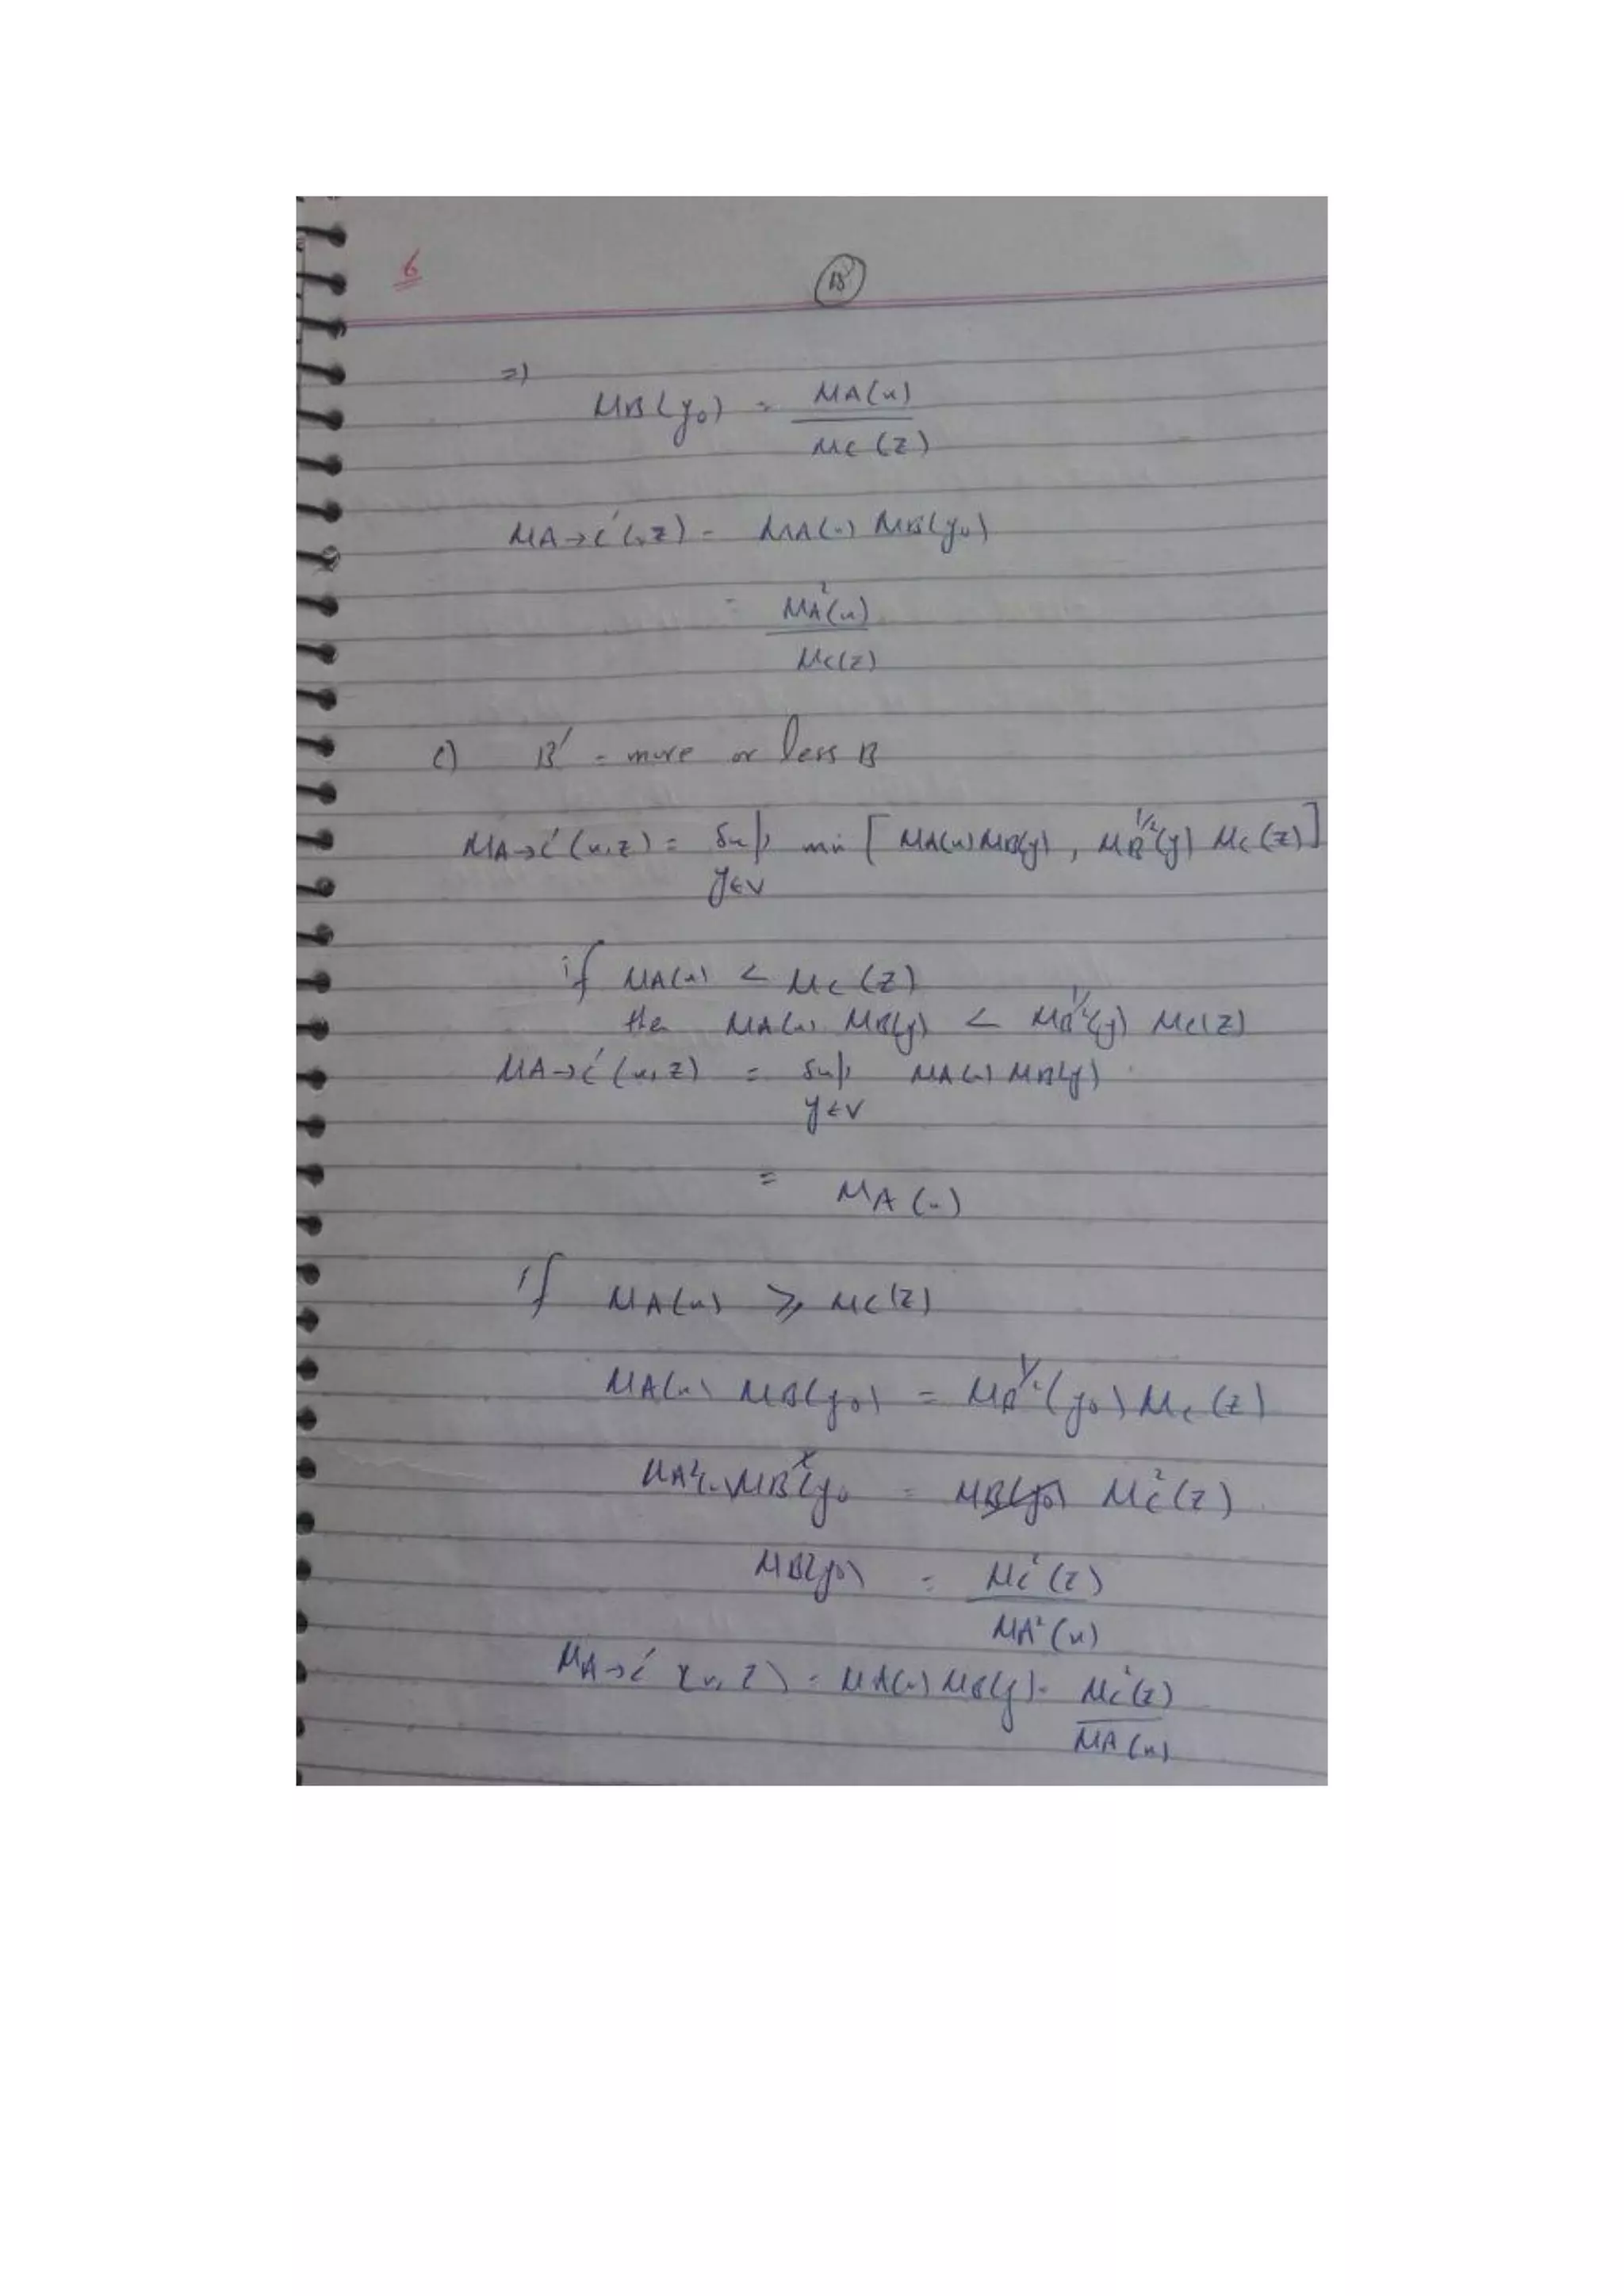 6
18
=)
μB(y₀) = μA(x)
μC(z)
μA→C'(x,z) = μA(x) μB(y₀)
= μA²(x)
μC(z)
c) B' = more or less B
μA→C'(x,z) = Sup min [ μA(x) μB(y) , μB^1/2(y) μC(z) ]
y∈V
if μA(x) < μC(z)
then μA(x) μB(y) < μB^1/2(y) μC(z)
μA→C'(x,z) = Sup μA(x) μB(y)
y∈V
= μA(x)
if μA(x) ⩾ μC(z)
μA(x) μB(y₀) = μB^1/2(y₀) μC(z)
μA²(x) μB²(y₀ = μB(y₀) μC²(z)
μB(y₀) = μC²(z)
μA²(x)
μA→C'(x,z) = μA(x) μB(y) = μC²(z)
μA(x)